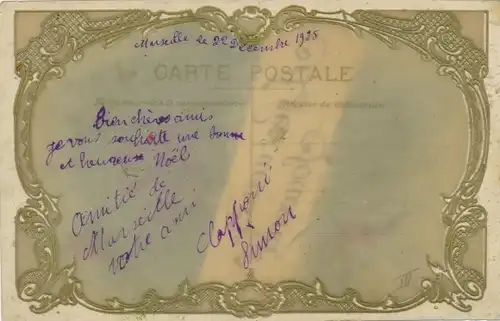 Marseille le 22 Décembre 1925
CARTE POSTALE
Bien chères amis
je vous souhaite une bonne
et heureuse Noël
Amitié de
Marseille
votre ami
Simon